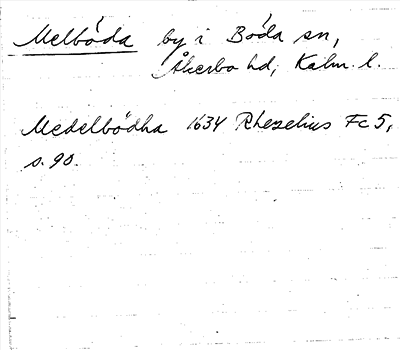 Melböda by i Böda sn,
Åkerbo hd, Kalm. l.
Medelbödha 1634 Rhezelius Fc 5,
s. 90.